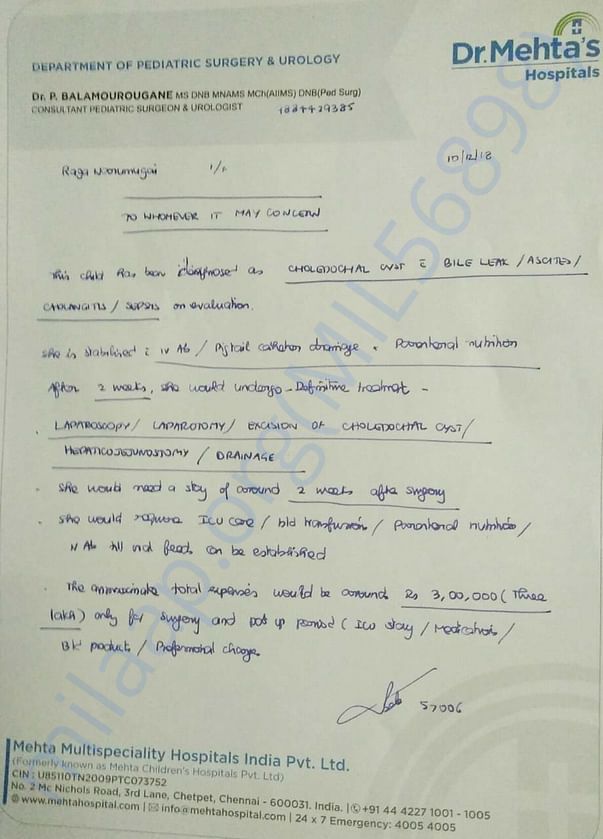 DEPARTMENT OF PEDIATRIC SURGERY & UROLOGY
Dr.Mehta's
Hospitals
Dr. P. BALAMOUROUGANE MS DNB MNAMS MCh(AIIMS) DNB(Ped Surg)
CONSULTANT PEDIATRIC SURGEON & UROLOGIST
10/12/18
Raga
TO WHOMEVER IT MAY CONCERN
This child has been diagnosed as CHOLEDOCHAL CYST c BILE LEAK / ASCITES /
CHOLANGITIS / SEPSIS on evaluation.
She is stabilised c IV Ab / Pigtail catheter drainage + Parenteral nutrition
After 2 weeks, she would undergo - Definitive treatment -
. LAPAROSCOPY / LAPAROTOMY / EXCISION OF CHOLEDOCHAL CYST /
HEPATICOJEJUNOSTOMY / DRAINAGE
. She would need a stay of around 2 weeks after surgery
. She would require ICU care / bld transfusion / Parenteral nutrition /
IV Ab till feeds can be established
. The approximate total expenses would be around Rs 3,00,000 (Three
lakh) only for surgery and post op period ( ICU stay / Medications /
Bld products / Professional charges
57006
Mehta Multispeciality Hospitals India Pvt. Ltd.
(Formerly known as Mehta Children's Hospitals Pvt. Ltd)
CIN : U85110TN2009PTC073752
No. 2 Mc Nichols Road, 3rd Lane, Chetpet, Chennai - 600031. India. | +91 44 4227 1001 - 1005
www.mehtahospital.com | info@mehtahospital.com | 24 x 7 Emergency: 4005 4005